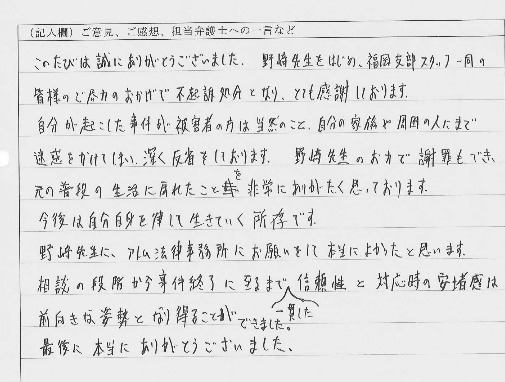 (記入欄)ご意見、ご感想、担当弁護士への一言など
このたびは誠にありがとうございました。野崎先生をはじめ、福岡支部スタッフ一同の
皆様のご尽力のおかげで不起訴処分となり、とても感謝しております。
自分が起こした事件が被害者の方は当然のこと、自分の家族や周囲の人にまで
迷惑をかけてしまい、深く反省をしております。野崎先生のお力で謝罪もでき、
元の普段の生活に戻れたことを非常にありがたく思っております。
今後は自分自身を律して生きていく所存です。
野崎先生に、アトム法律事務所にお願いをして本当によかったと思います。
相談の段階から事件終了に至るまで一貫した信頼性と対応時の安堵感は
前向きな姿勢となり得ることができました。
最後に本当にありがとうございました。